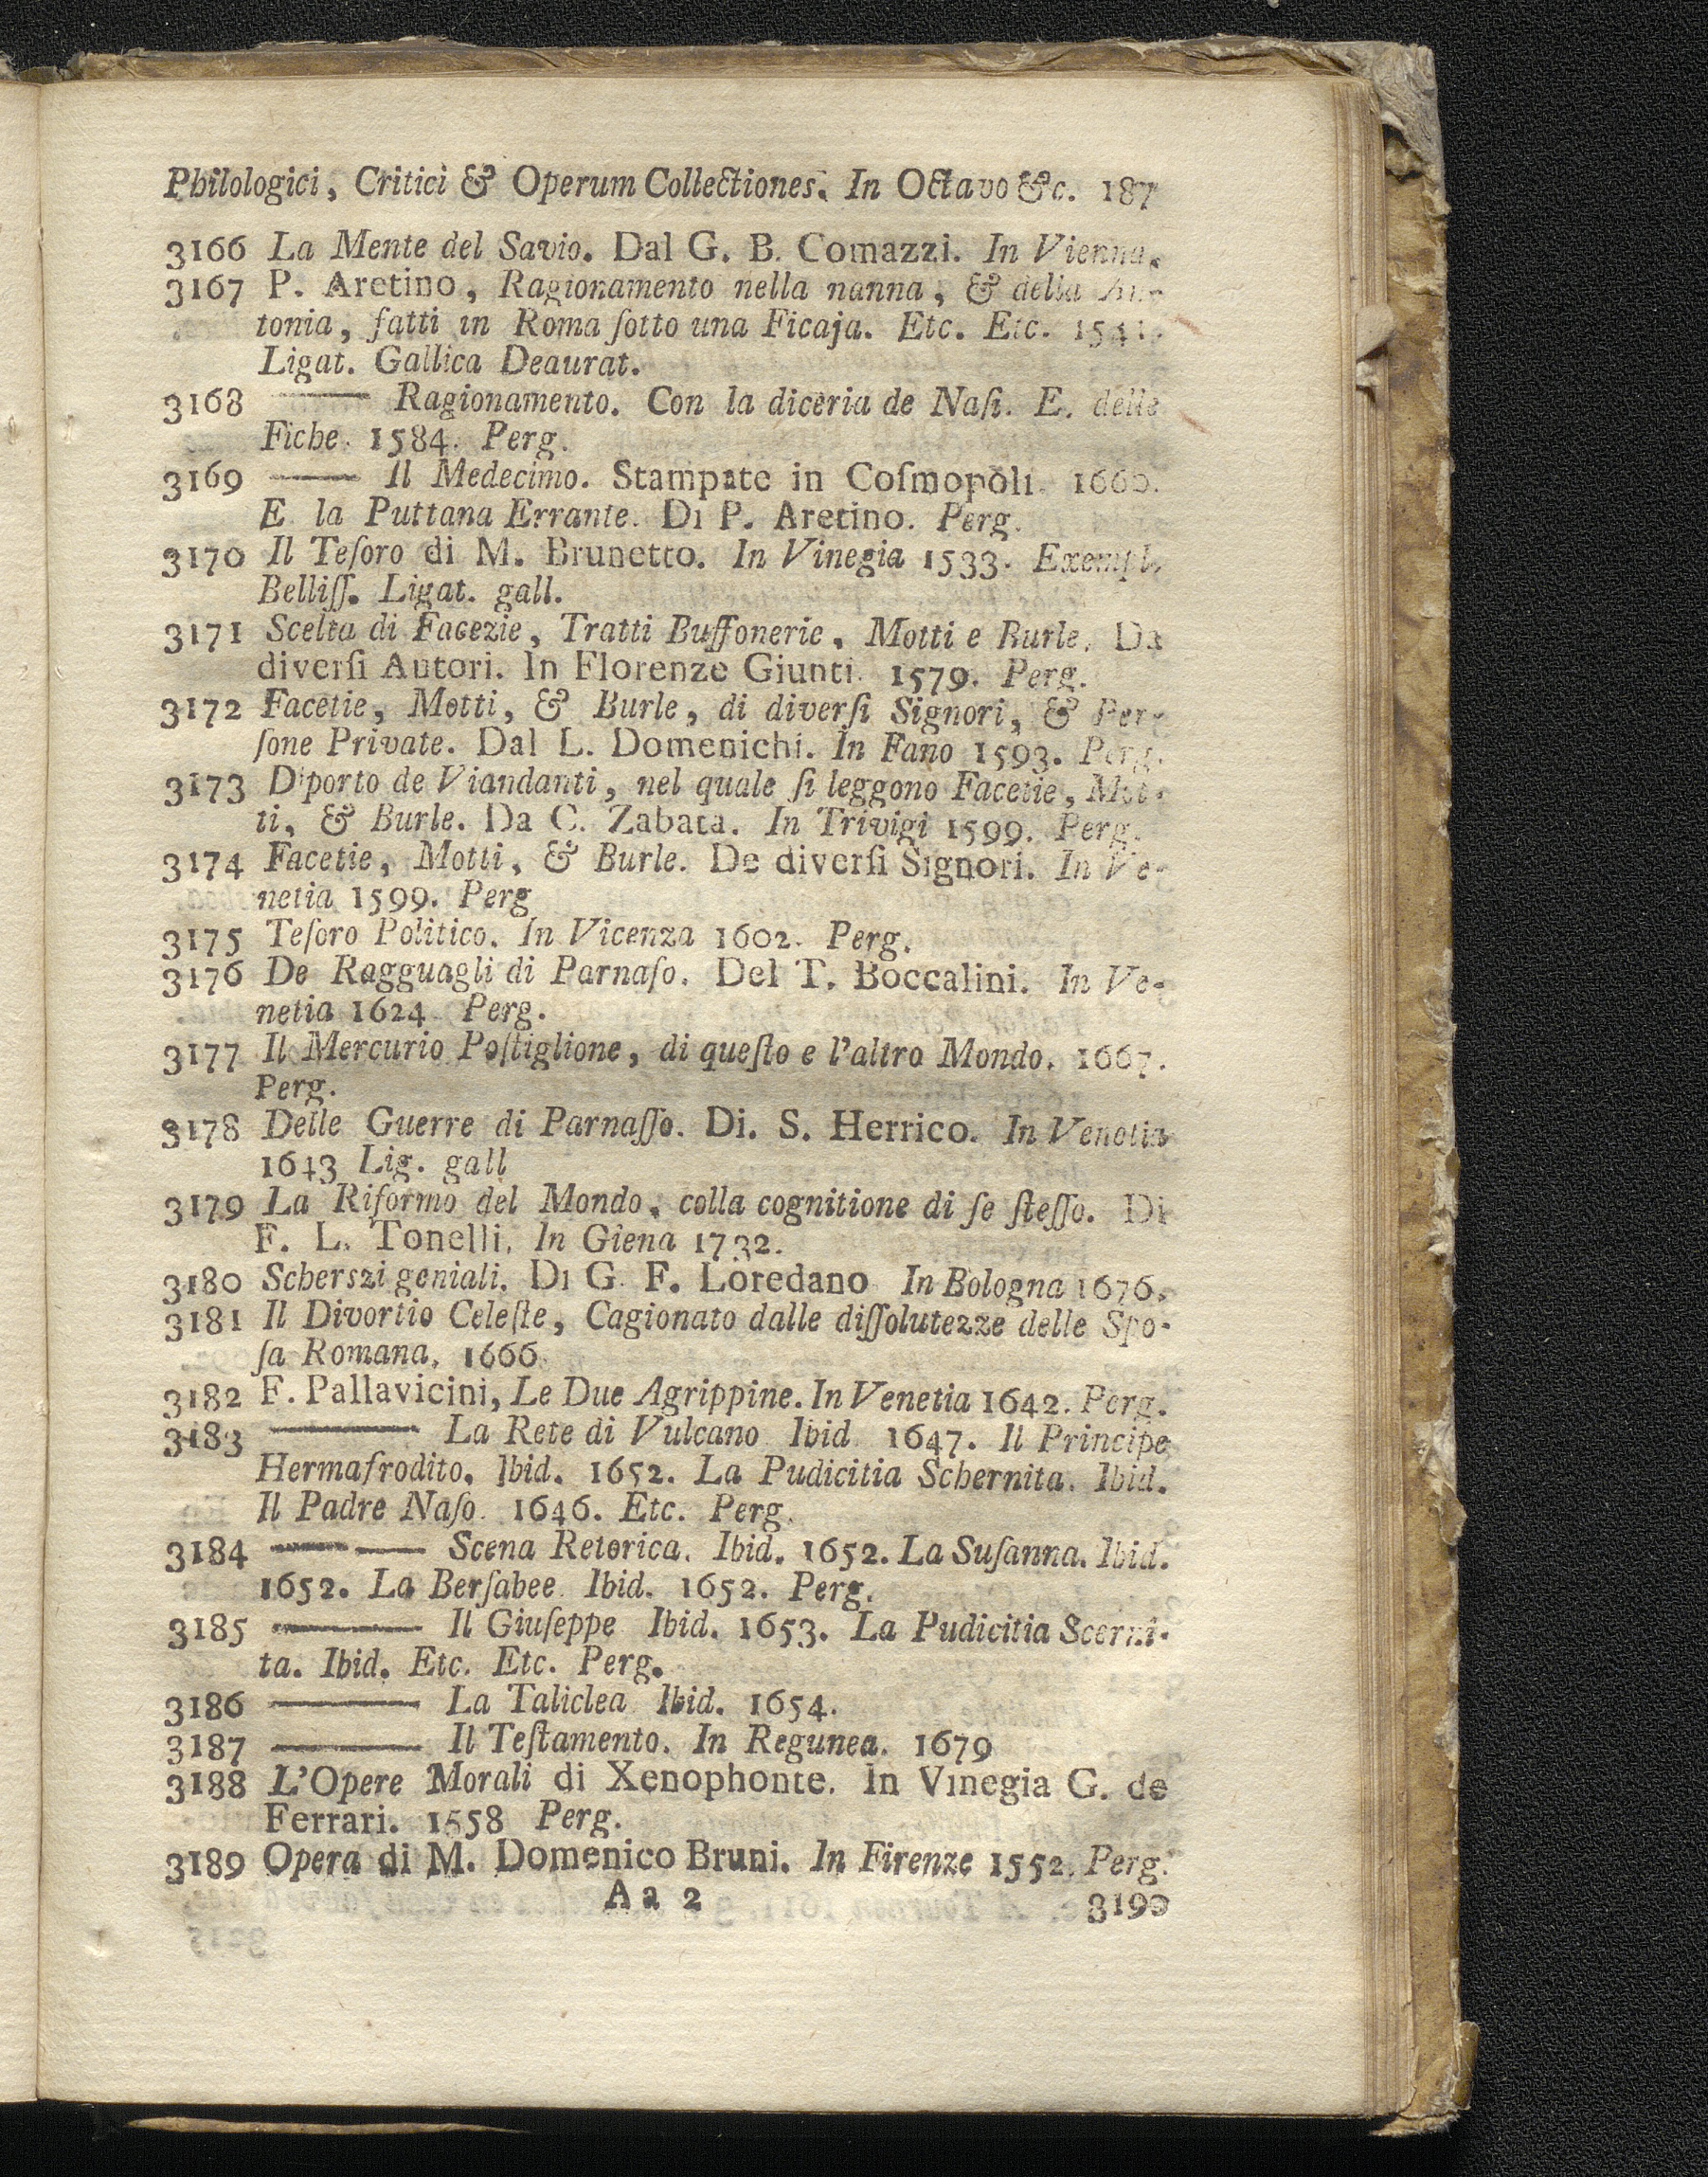 Philologici, Critici & Operum Collectiones. In Octavo &c. 187
3166 La Mente del Savio. Dal G. B. Comazzi. In Vienna.
3167 P. Aretino, Ragionamento nella nanna, & della An-
tonia, fatti in Roma ſotto una Ficaja. Etc. Etc. 1541.
Ligat. Gallica Deaurat.
3168 —— Ragionamento. Con la diceria de Naſi. E. delle
Fiche. 1584. Perg.
3169 —— Il Medecimo. Stampate in Coſmopoli. 1660.
E la Puttana Errante. Di P. Aretino. Perg.
3170 Il Teſoro di M. Brunetto. In Vinegia 1533. Exempl.
Belliſſ. Ligat. gall.
3171 Scelta di Facezie, Tratti Buffonerie, Motti e Burle. Da
diverſi Autori. In Florenze Giunti. 1579. Perg.
3172 Facetie, Motti, & Burle, di diverſi Signori, & Per-
ſone Private. Dal L. Domenichi. In Fano 1593. Perg.
3173 Diporto de Viandanti, nel quale ſi leggono Facetie, Mot-
ti, & Burle. Da C. Zabata. In Trivigi 1599. Perg.
3174 Facetie, Motti, & Burle. De diverſi Signori. In Ve-
netia 1599. Perg
3175 Teſoro Politico. In Vicenza 1602. Perg.
3176 De Ragguagli di Parnaſo. Del T. Boccalini. In Ve-
netia 1624 Perg.
3177 Il Mercurio Poſtiglione, di queſto e l'altro Mondo. 1667.
Perg.
3178 Delle Guerre di Parnaſſo. Di. S. Herrico. In Venetia
1643 Lig. gall
3179 La Riformo del Mondo, colla cognitione di ſe ſteſſo. Di
F. L. Tonelli. In Giena 1732.
3180 Scherszi geniali. Di G. F. Loredano In Bologna 1676.
3181 Il Divortio Celeſte, Cagionato dalle diſſolutezze delle Spo-
ſa Romana. 1666.
3182 F. Pallavicini, Le Due Agrippine. In Venetia 1642. Perg.
3183 —— La Rete di Vulcano Ibid 1647. Il Principe
Hermafrodito. Ibid. 1652. La Pudicitia Schernita. Ibid.
Il Padre Naſo. 1646. Etc. Perg.
3184 —— Scena Retorica. Ibid. 1652. La Suſanna. Ibid.
1652. La Berſabee. Ibid. 1652. Perg.
3185 —— Il Giuſeppe Ibid. 1653. La Pudicitia Scerni-
ta. Ibid. Etc. Etc. Perg.
3186 —— La Taliclea Ibid. 1654.
3187 —— Il Teſtamento. In Regunea. 1679
3188 L'Opere Morali di Xenophonte. In Vinegia G. de
Ferrari. 1558 Perg.
3189 Opera di M. Domenico Bruni. In Firenze 1552. Perg.
A a 2 3190